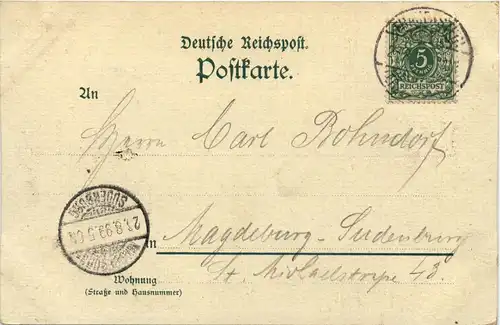 Deutsche Reichspost.
Postkarte.
5
REICHSPOST
An
Herrn Carl Bohndorf
SUDENBURG
21.8.99.5-6N
MAGDEBURG
in Magdeburg-Sudenburg
St. Michaelstraße 43
Wohnung
(Straße und Hausnummer)